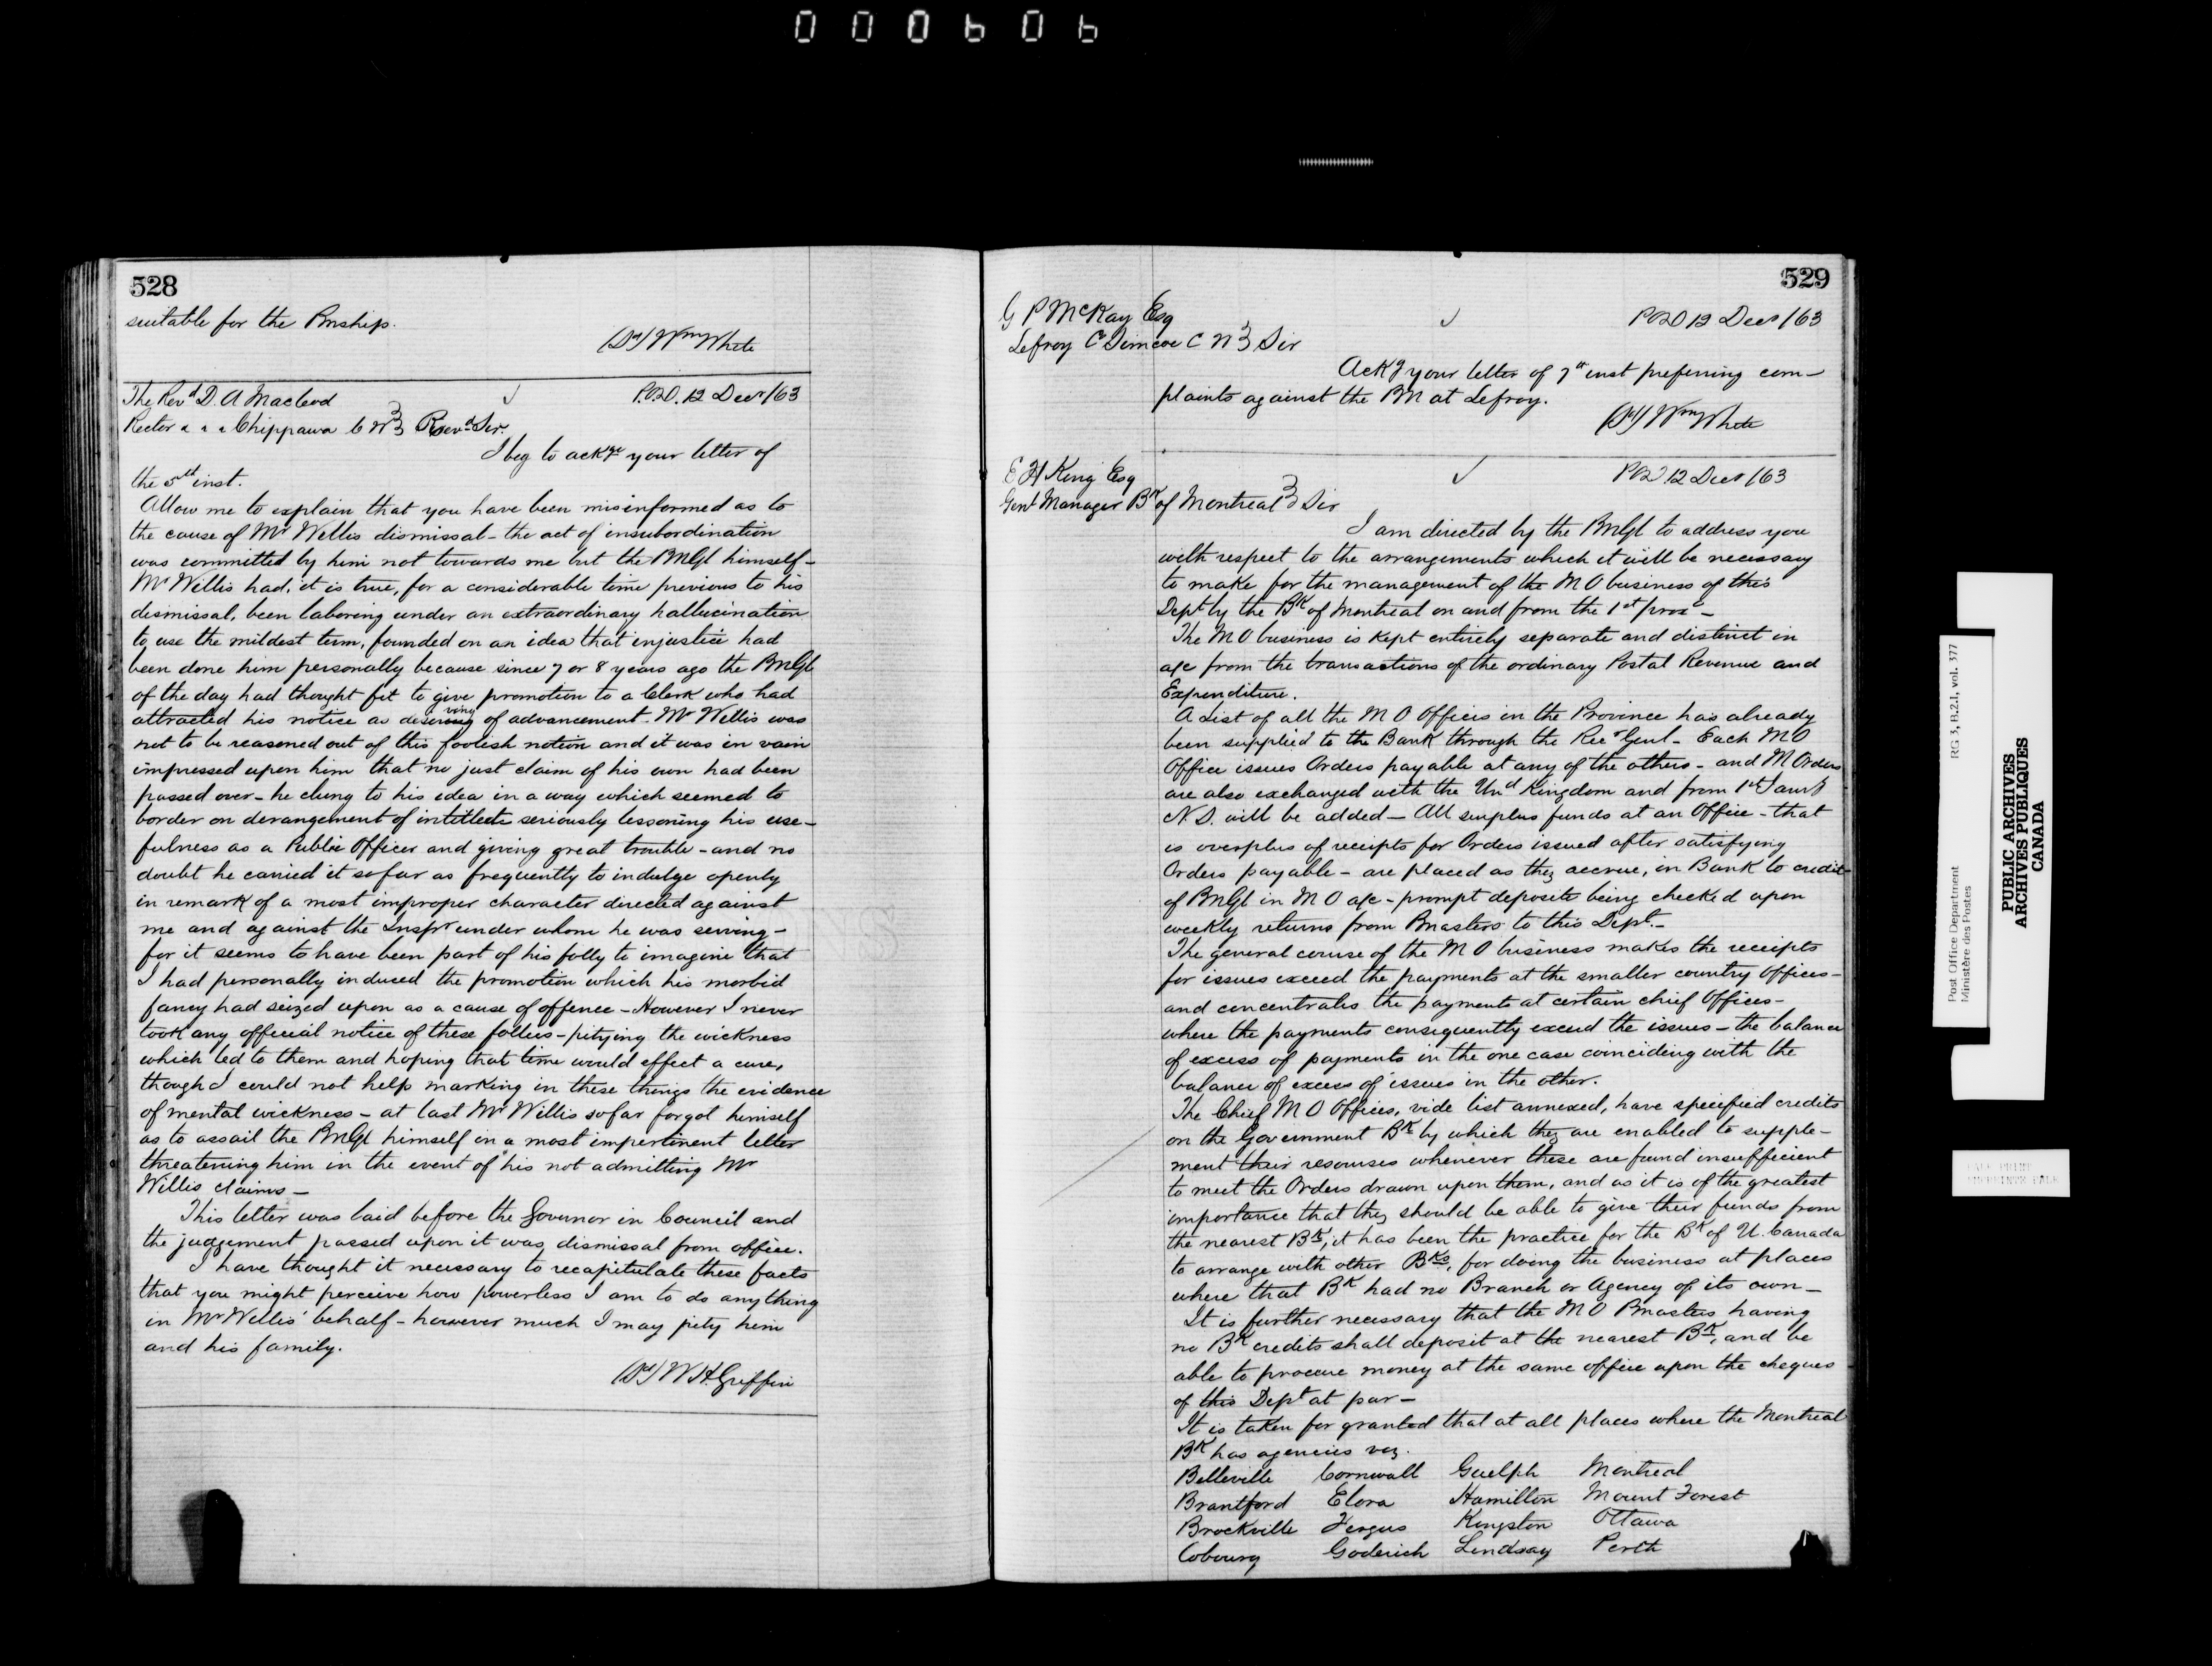 000606
528
suitable for the Pmship.
(Sd) Wm White
The Revd D. A Macleod
P.O.D. 12 Decr /63
Rector &c &c Chippawa C W } Revd Sir.
I beg to ackge your letter of
the 5th inst.
Allow me to explain that you have been misinformed as to
the cause of Mr Willis dismissal - the act of insubordination
was committed by him not towards me but the PMGl himself -
Mr Willis had, it is true, for a considerable time previous to his
dismissal, been laboring under an extraordinary hallucination
to use the mildest term, founded on an idea that injustice had
been done him personally because since 7 or 8 years ago the PMGl
of the day had thought fit to give promotion to a Clerk who had
attracted his notice as deserving of advancement. Mr Willis was
not to be reasoned out of this foolish notion and it was in vain
impressed upon him that no just claim of his own had been
passed over - he clung to his idea in a way which seemed to
border on derangement of intitlects seriously lessoning his use-
fulness as a Public Officer and giving great trouble - and no
doubt he carried it so far as frequently to indulge openly
in remark of a most improper character directed against
me and against the Inspr under whom he was serving -
for it seems to have been part of his folly to imagine that
I had personally induced the promotion which his morbid
fancy had seized upon as a cause of offence - However I never
took any official notice of these follies - pitying the wickness
which led to them and hoping that time would effect a cure,
though I could not help marking in these things the evidence
of mental wickness - at last Mr Willis so far forgot himself
as to assail the PMGl himself in a most impertinent letter
threatening him in the event of his not admitting Mr
Willis claims -
This letter was laid before the Governor in Council and
the judgement passed upon it was dismissal from office.
I have thought it necessary to recapitulate these facts
that you might perceive how powerless I am to do anything
in Mr Willis' behalf - however much I may pity him
and his family.
(Sd) W H. Griffin
529
G P McKay Esq
P.O.D 12 Decr /63
Lefroy Co Simcoe C W } Sir
Ackg your letter of 7th inst preferring com-
plaints against the PM at Lefroy.
(Sd) Wm White
E H King Esq
P.O.D 12 Decr /63
Genl Manager Bk of Montreal } Sir
I am directed by the PMGl to address you
with respect to the arrangements which it will be necessary
to make for the management of the M O business of this
Dept by the Bk of Montreal on and from the 1st proxo -
The M O business is kept entirely separate and distinct in
a/c from the transactions of the ordinary Postal Revenue and
Expenditure.
A List of all the M O Offices in the Province has already
been supplied to the Bank through the Recr Genl - Each M O
Office issues Orders payable at any of the others - and M Orders
are also exchanged with the Und Kingdom and from 1st Jany
N. S. will be added - All surplus funds at an Office - that
is overplus of receipts for Orders issued after satisfying
Orders payable - are placed as they accrue, in Bank to credit
of PMGl in M O a/c - prompt deposits being checked upon
weekly returns from Pmasters to this Dept. -
The general course of the M O business makes the receipts
for issues exceed the payments at the smaller country Offices -
and concentrates the payments at certain chief Offices -
where the payments consequently exceed the issues - the balance
of excess of payments in the one case coinciding with the
balance of excess of issues in the other.
The Chief M O Offices, vide list annexed, have specified credits
on the Government Bk by which they are enabled to supple-
ment their resourses whenever these are found insufficient
to meet the Orders drawn upon them, and as it is of the greatest
importance that they should be able to give their funds from
the nearest Bk, it has been the practice for the Bk of U. Canada
to arrange with other Bks, for doing the business at places
where that Bk had no Branch or Agency of its own -
It is further necessary that the M O Pmasters having
no Bk credits shall deposit at the nearest Bk, and be
able to procure money at the same office upon the cheques
of this Dept at par -
It is taken for granted that at all places where the Montreal
Bk has agencies viz.
Belleville Cornwall Guelph Montreal
Brantford Elora Hamilton Mount Forest
Brockville Fergus Kingston Ottawa
Cobourg Goderich Lindsay Perth
Post Office Department
Ministère des Postes
RG 3, B.2.1, vol. 377
PUBLIC ARCHIVES
ARCHIVES PUBLIQUES
CANADA